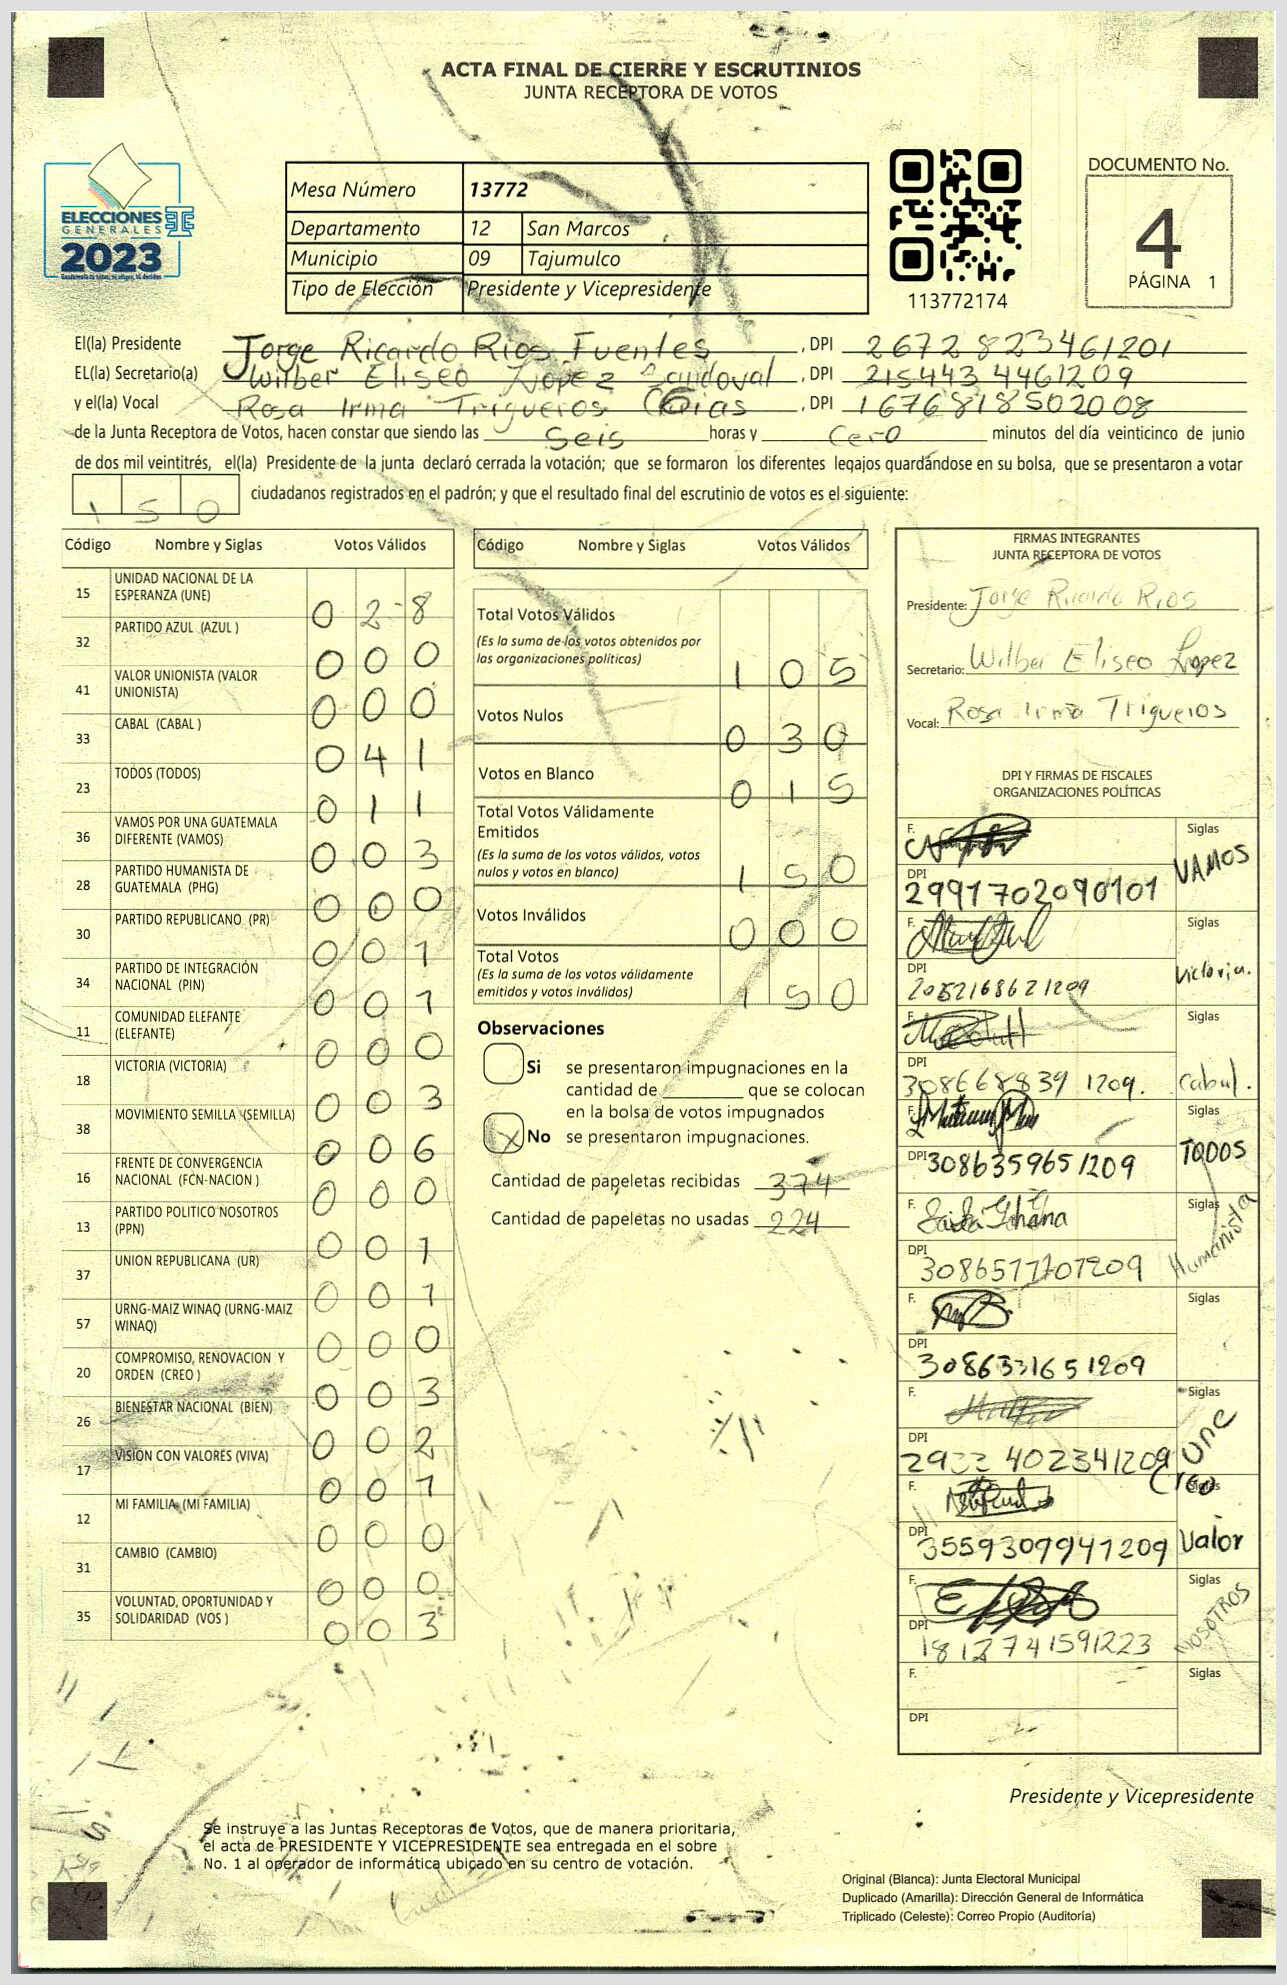 ACTA FINAL DE CIERRE Y ESCRUTINIOS
JUNTA RECEPTORA DE VOTOS
ELECCIONES
GENERALES
2023
Mesa Número 13772
Departamento 12 San Marcos
Municipio 09 Tajumulco
Tipo de Elección Presidente y Vicepresidente
113772174
DOCUMENTO No.
4
PÁGINA 1
El(la) Presidente Jorge Ricardo Rios Fuentes, DPI 2672823461201
EL(la) Secretario(a) Wilber Eliseo Lopez Sandoval, DPI 215443 4461209
y el(la) Vocal Rosa Irma Trigueros, DPI 1676818502008
de la Junta Receptora de Votos, hacen constar que siendo las Seis horas y Cero minutos del día veinticinco de junio
de dos mil veintitrés, el(la) Presidente de la junta declaró cerrada la votación; que se formaron los diferentes legajos guardándose en su bolsa, que se presentaron a votar
150 ciudadanos registrados en el padrón; y que el resultado final del escrutinio de votos es el siguiente:
Código Nombre y Siglas Votos Válidos
15 UNIDAD NACIONAL DE LA ESPERANZA (UNE) 0 2 8
32 PARTIDO AZUL (AZUL ) 0 0 0
41 VALOR UNIONISTA (VALOR UNIONISTA) 0 0 0
33 CABAL (CABAL ) 0 4 1
23 TODOS (TODOS) 0 1 1
36 VAMOS POR UNA GUATEMALA DIFERENTE (VAMOS) 0 0 3
28 PARTIDO HUMANISTA DE GUATEMALA (PHG) 0 0 0
30 PARTIDO REPUBLICANO (PR) 0 0 1
34 PARTIDO DE INTEGRACIÓN NACIONAL (PIN) 0 0 1
11 COMUNIDAD ELEFANTE (ELEFANTE) 0 0 0
18 VICTORIA (VICTORIA) 0 0 3
38 MOVIMIENTO SEMILLA (SEMILLA) 0 0 6
16 FRENTE DE CONVERGENCIA NACIONAL (FCN-NACION ) 0 0 0
13 PARTIDO POLITICO NOSOTROS (PPN) 0 0 1
37 UNION REPUBLICANA (UR) 0 0 1
57 URNG-MAIZ WINAQ (URNG-MAIZ WINAQ) 0 0 0
20 COMPROMISO, RENOVACION Y ORDEN (CREO ) 0 0 3
26 BIENESTAR NACIONAL (BIEN) 0 0 2
17 VISIÓN CON VALORES (VIVA) 0 0 1
12 MI FAMILIA (MI FAMILIA) 0 0 0
31 CAMBIO (CAMBIO) 0 0 0
35 VOLUNTAD, OPORTUNIDAD Y SOLIDARIDAD (VOS ) 0 0 3
Código Nombre y Siglas Votos Válidos
Total Votos Válidos 1 0 5
(Es la suma de los votos obtenidos por
las organizaciones políticas)
Votos Nulos 0 3 0
Votos en Blanco 0 1 5
Total Votos Válidamente
Emitidos 1 5 0
(Es la suma de los votos válidos, votos
nulos y votos en blanco)
Votos Inválidos 0 0 0
Total Votos 1 5 0
(Es la suma de los votos válidamente
emitidos y votos inválidos)
Observaciones
Si se presentaron impugnaciones en la
cantidad de ________ que se colocan
en la bolsa de votos impugnados
X No se presentaron impugnaciones.
Cantidad de papeletas recibidas 374
Cantidad de papeletas no usadas 224
FIRMAS INTEGRANTES
JUNTA RECEPTORA DE VOTOS
Presidente: Jorge Ricardo Rios
Secretario: Wilber Eliseo Lopez
Vocal: Rosa Irma Trigueros
DPI Y FIRMAS DE FISCALES
ORGANIZACIONES POLÍTICAS
F. Siglas VAMOS
DPI 2991702090101
F. Siglas Victoria.
DPI 2052168621209
F. Siglas Cabal.
DPI 308668839 1209.
F. Siglas TODOS
DPI 3086359651209
F. Siglas Humanista
DPI 3086577707209
F. Siglas
DPI 3086331651209
F. Siglas Une
DPI 402341209
F. Siglas Creo
Valor
DPI 3559309941209
F. Siglas NOSOTROS
DPI 1812741591223
F. Siglas
DPI
Presidente y Vicepresidente
Se instruye a las Juntas Receptoras de Votos, que de manera prioritaria,
el acta de PRESIDENTE Y VICEPRESIDENTE sea entregada en el sobre
No. 1 al operador de informática ubicado en su centro de votación.
Original (Blanca): Junta Electoral Municipal
Duplicado (Amarilla): Dirección General de Informática
Triplicado (Celeste): Correo Propio (Auditoría)